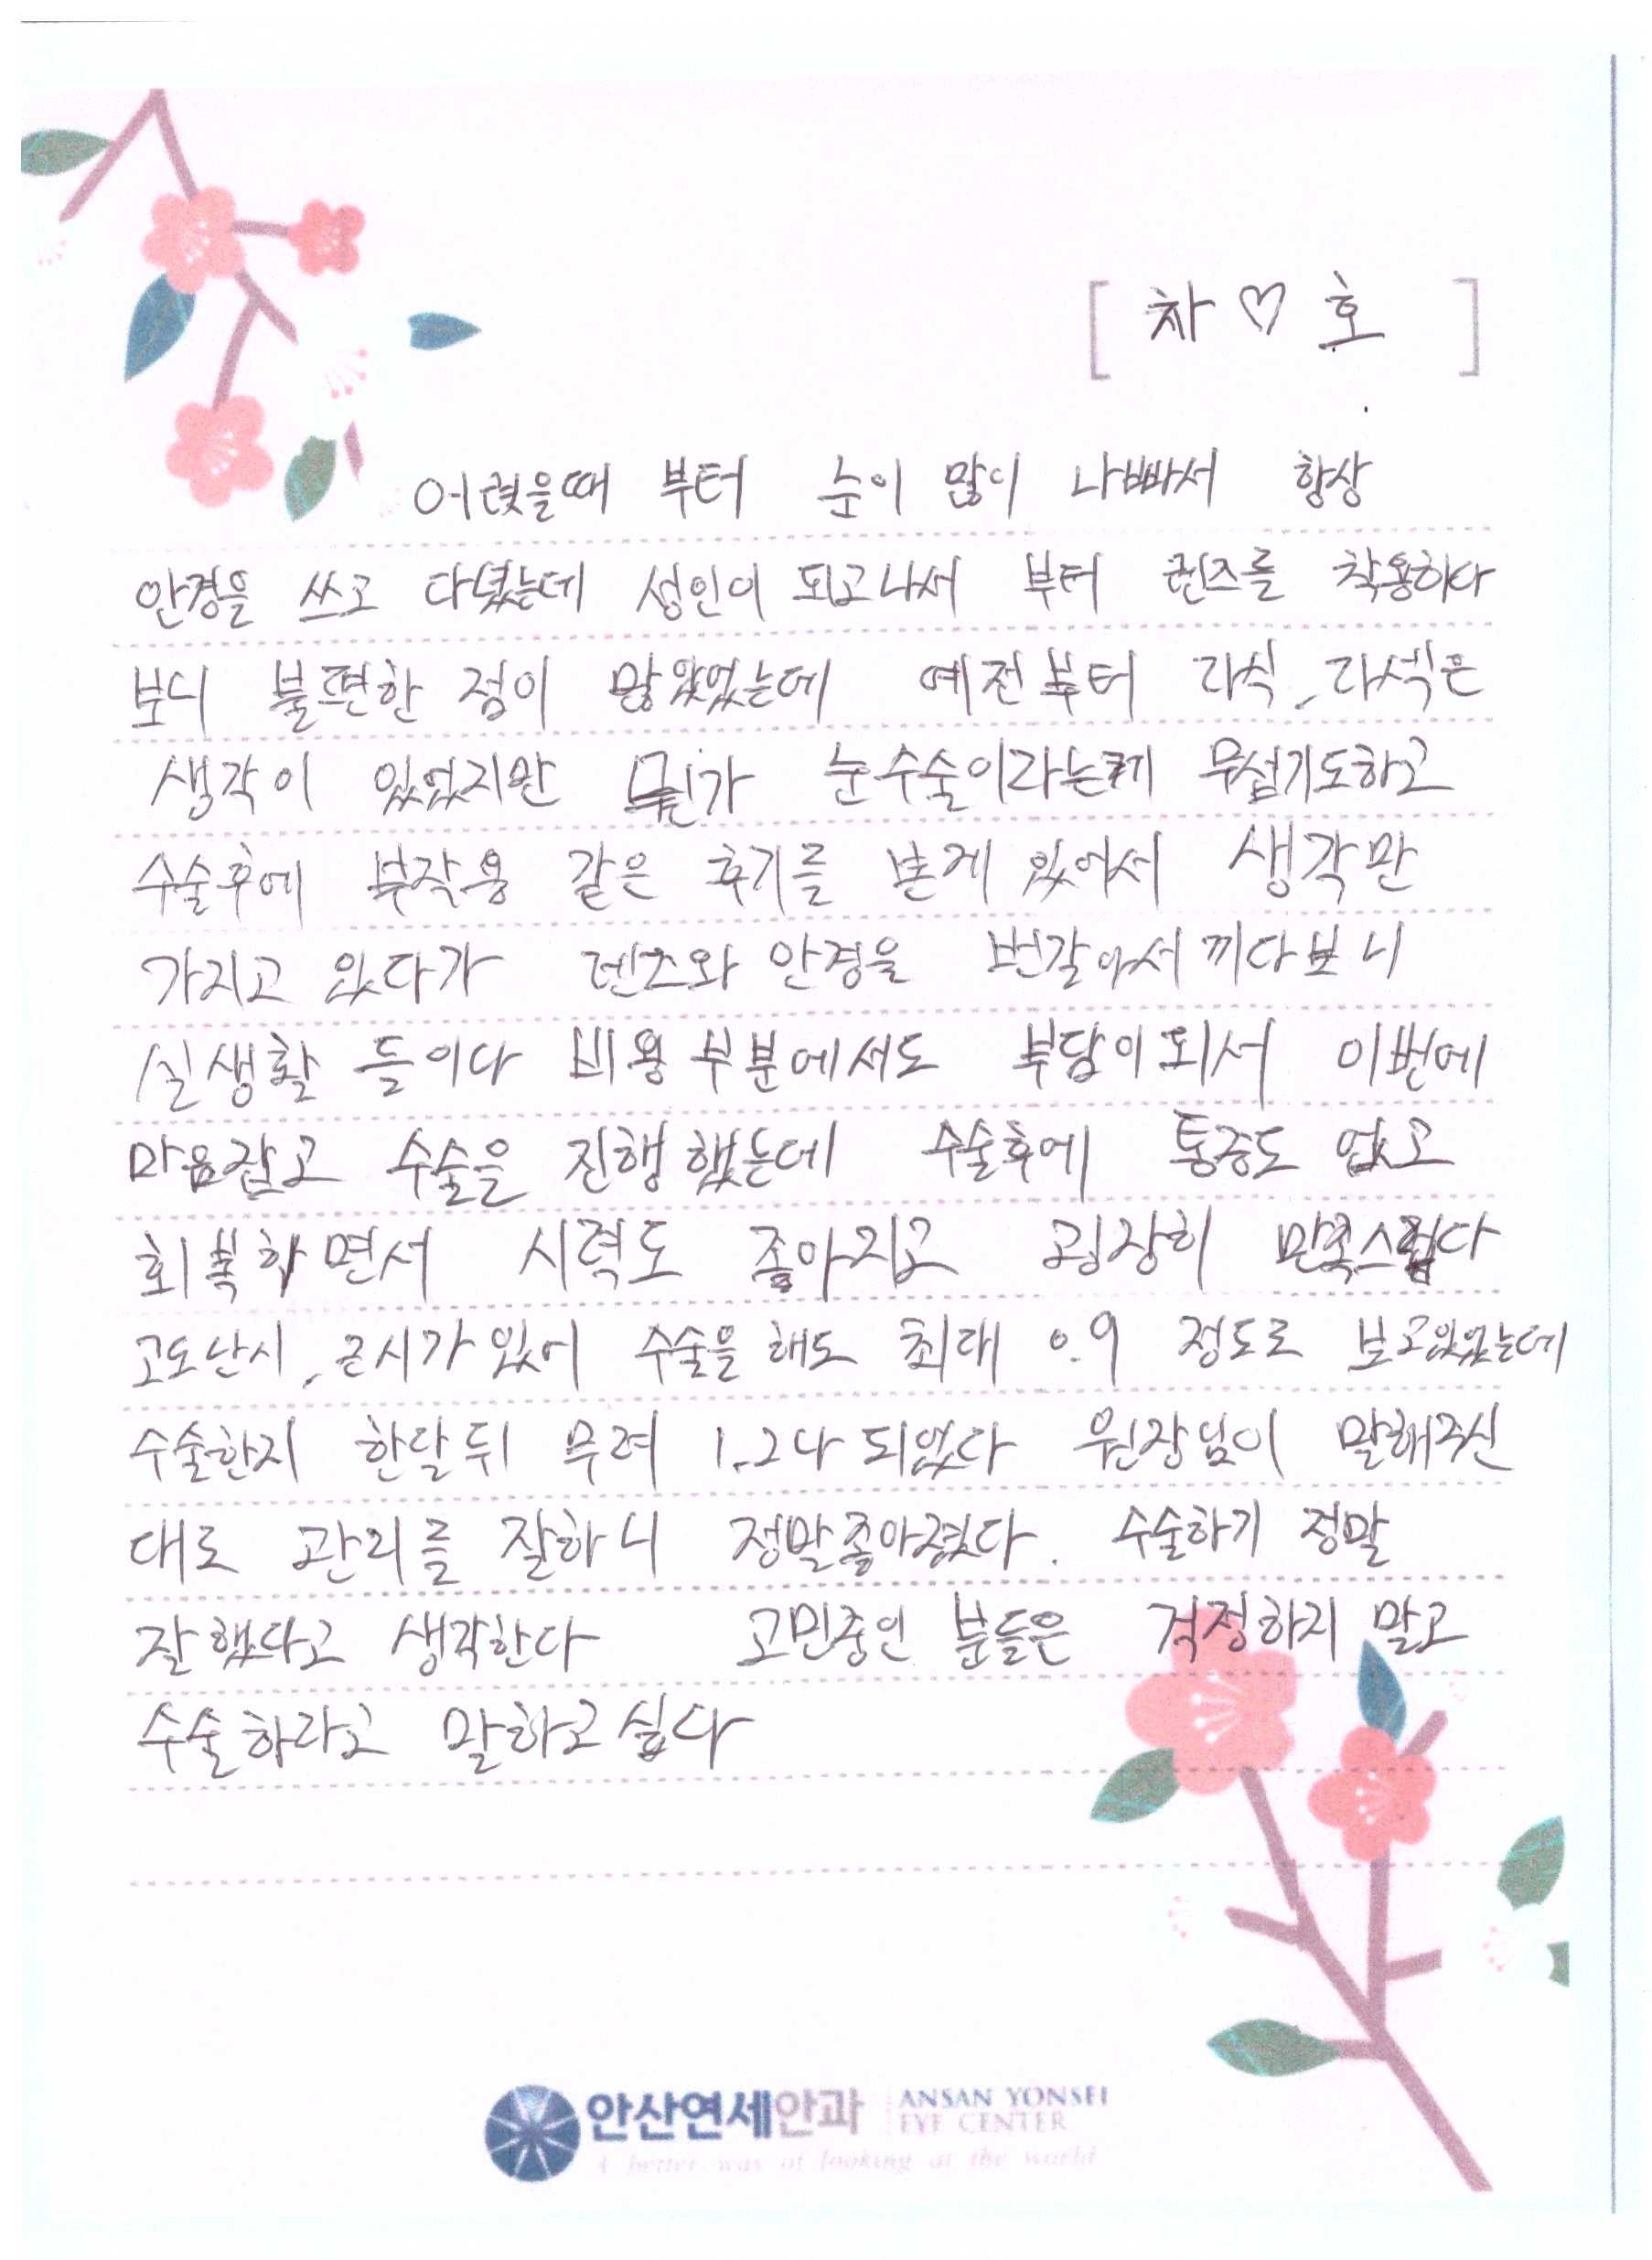 [ 차 ♡ 호 ]
어렸을때 부터 눈이 많이 나빠서 항상
안경을 쓰고 다녔는데 성인이 되고나서 부터 렌즈를 착용하다
보니 불편한 점이 많았었는데 예전부터 라식, 라섹은
생각이 있었지만 뭔가 눈수술이라는게 무섭기도하고
수술후에 부작용 같은 후기를 본게 있어서 생각만
가지고 있다가 렌즈와 안경을 번갈아서 끼다보니
실생활 들이다 비용부분에서도 부담이되서 이번에
마음잡고 수술을 진행했는데 수술후에 통증도 없고
회복하면서 시력도 좋아지고 굉장히 만족스럽다
고도난시, 근시가있어 수술을 해도 최대 0.9 정도로 보고있었는데
수술한지 한달뒤 무려 1.2나 되었다 원장님이 말해주신
대로 관리를 잘하니 정말좋아졌다. 수술하기 정말
잘했다고 생각한다 고민중인 분들은 걱정하지 말고
수술하라고 말하고싶다
안산연세안과 ANSAN YONSEI
EYE CENTER
A better way of looking at the world